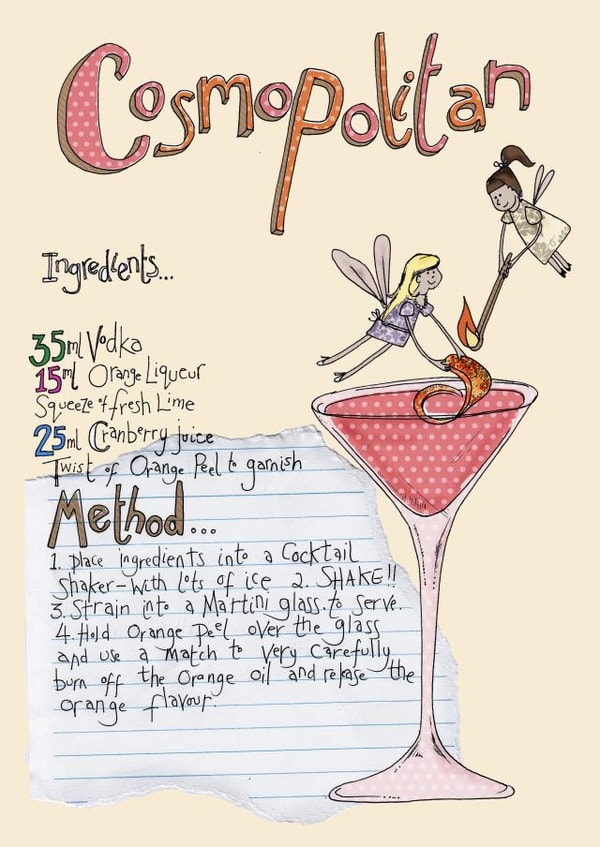 Cosmopolitan
Ingredients...
35ml Vodka
15ml Orange Liqueur
Squeeze of fresh Lime
25ml Cranberry juice
Twist of Orange Peel to garnish
Method...
1. place ingredients into a Cocktail
Shaker-with lots of ice 2. SHAKE!!
3. Strain into a Martini glass.to Serve.
4. Hold Orange Peel over the glass
and use a Match to Very Carefully
burn off the Orange oil and release the
orange flavour.